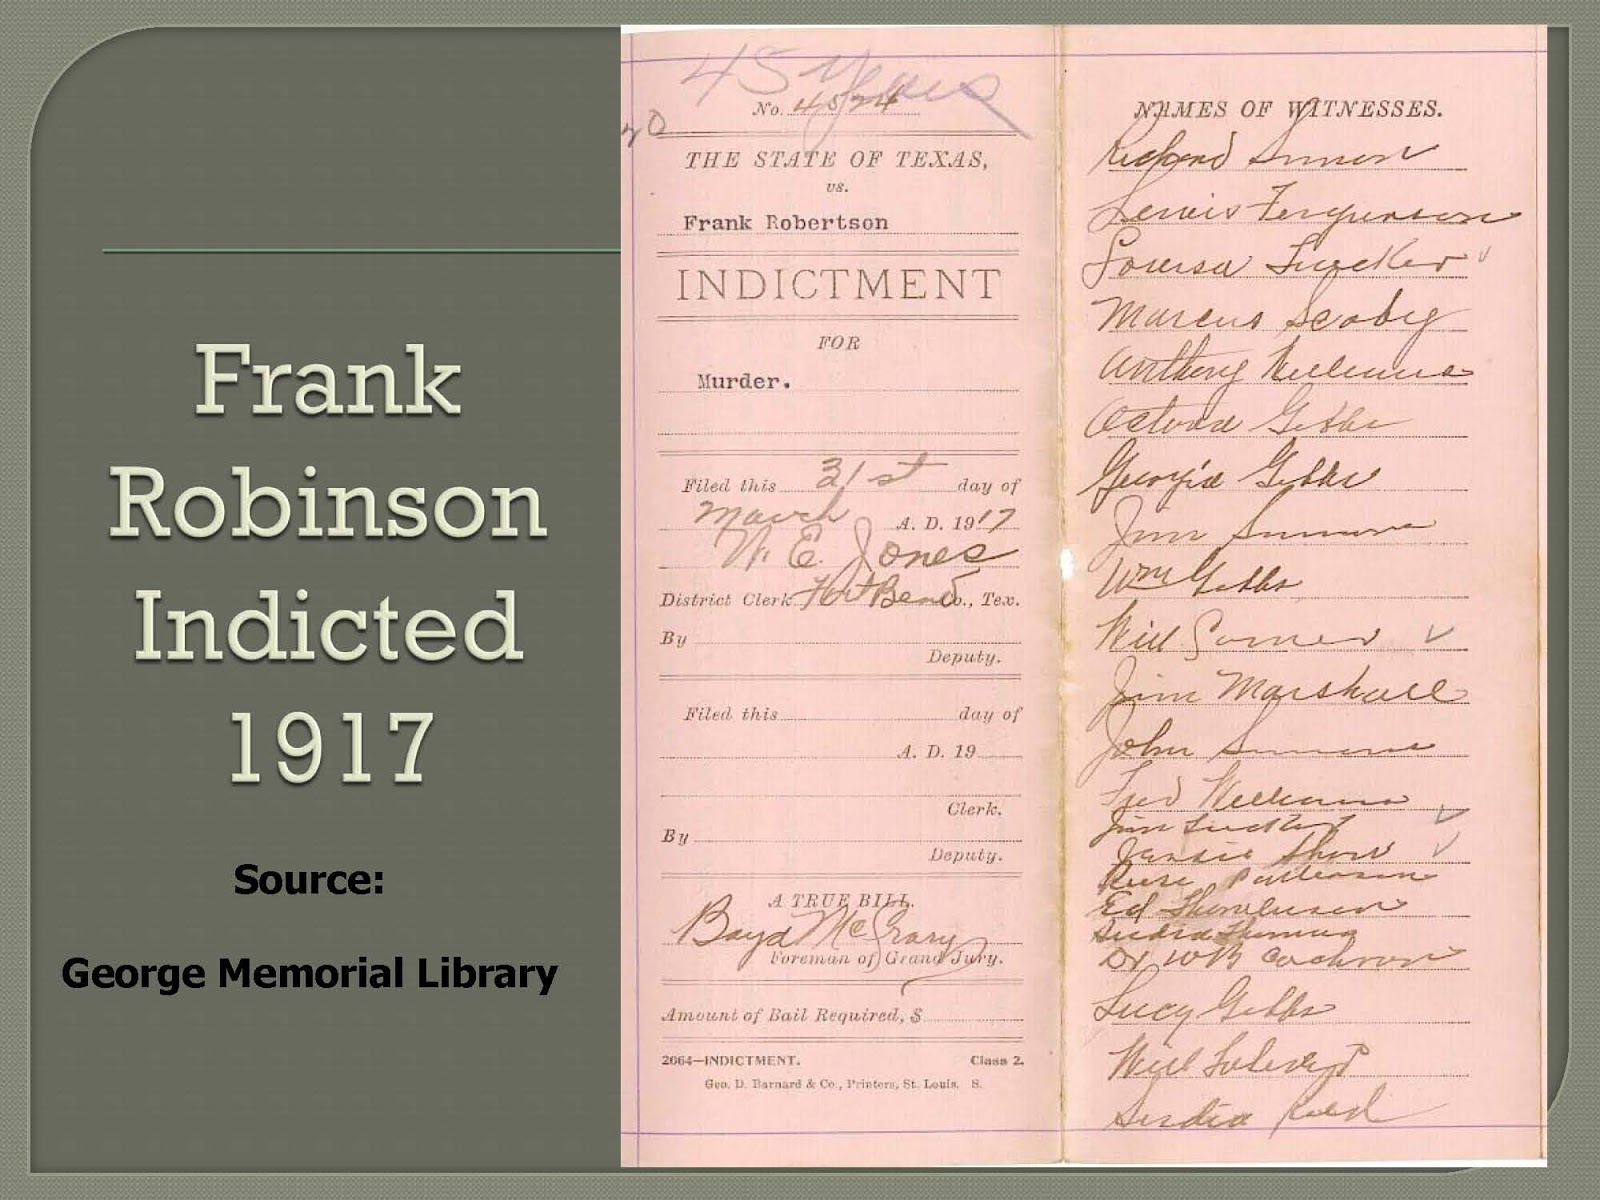 Frank
Robinson
Indicted
1917
Source:
George Memorial Library
45 Years
No. 4574
THE STATE OF TEXAS,
vs.
Frank Robertson
INDICTMENT
FOR
Murder.
Filed this 31st day of
March A. D. 1917
Jones
District Clerk Fort Bend Co., Tex.
By
Deputy.
Filed this day of
A. D. 19
Clerk.
By
Deputy.
A TRUE BILL.
Boyd McCrary
Foreman of Grand Jury.
Amount of Bail Required, $
2064—INDICTMENT. Class 2.
Geo. D. Barnard & Co., Printers, St. Louis. S.
NAMES OF WITNESSES.
Richard
Lewis Ferguson
Louisa Tucker
Marcus Scobey
Anthony Williams
Gibbs
Georgia Gibbs
Jim
Wm Gibbs
Will
Jim Marshall
John
Fred Williams
Jim Tucker
Patterson
Ed
Dr Cochran
Lucy Gibbs
Will